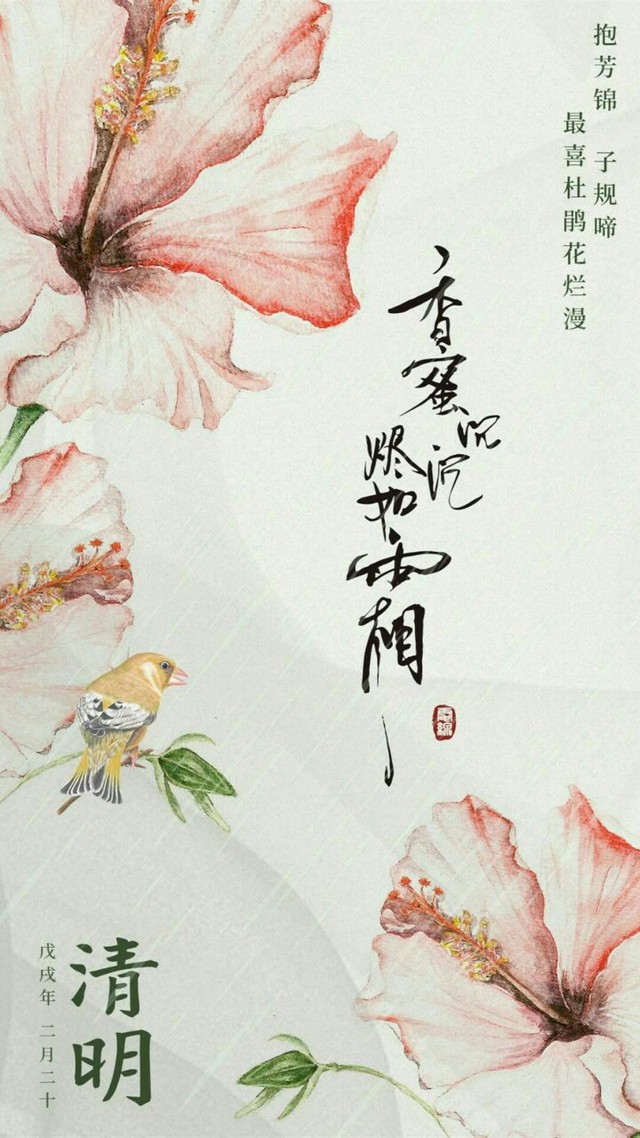 抱芳锦 子规啼
最喜杜鹃花烂漫
香蜜
沉沉
烬如霜
清明
戊戌年 二月二十